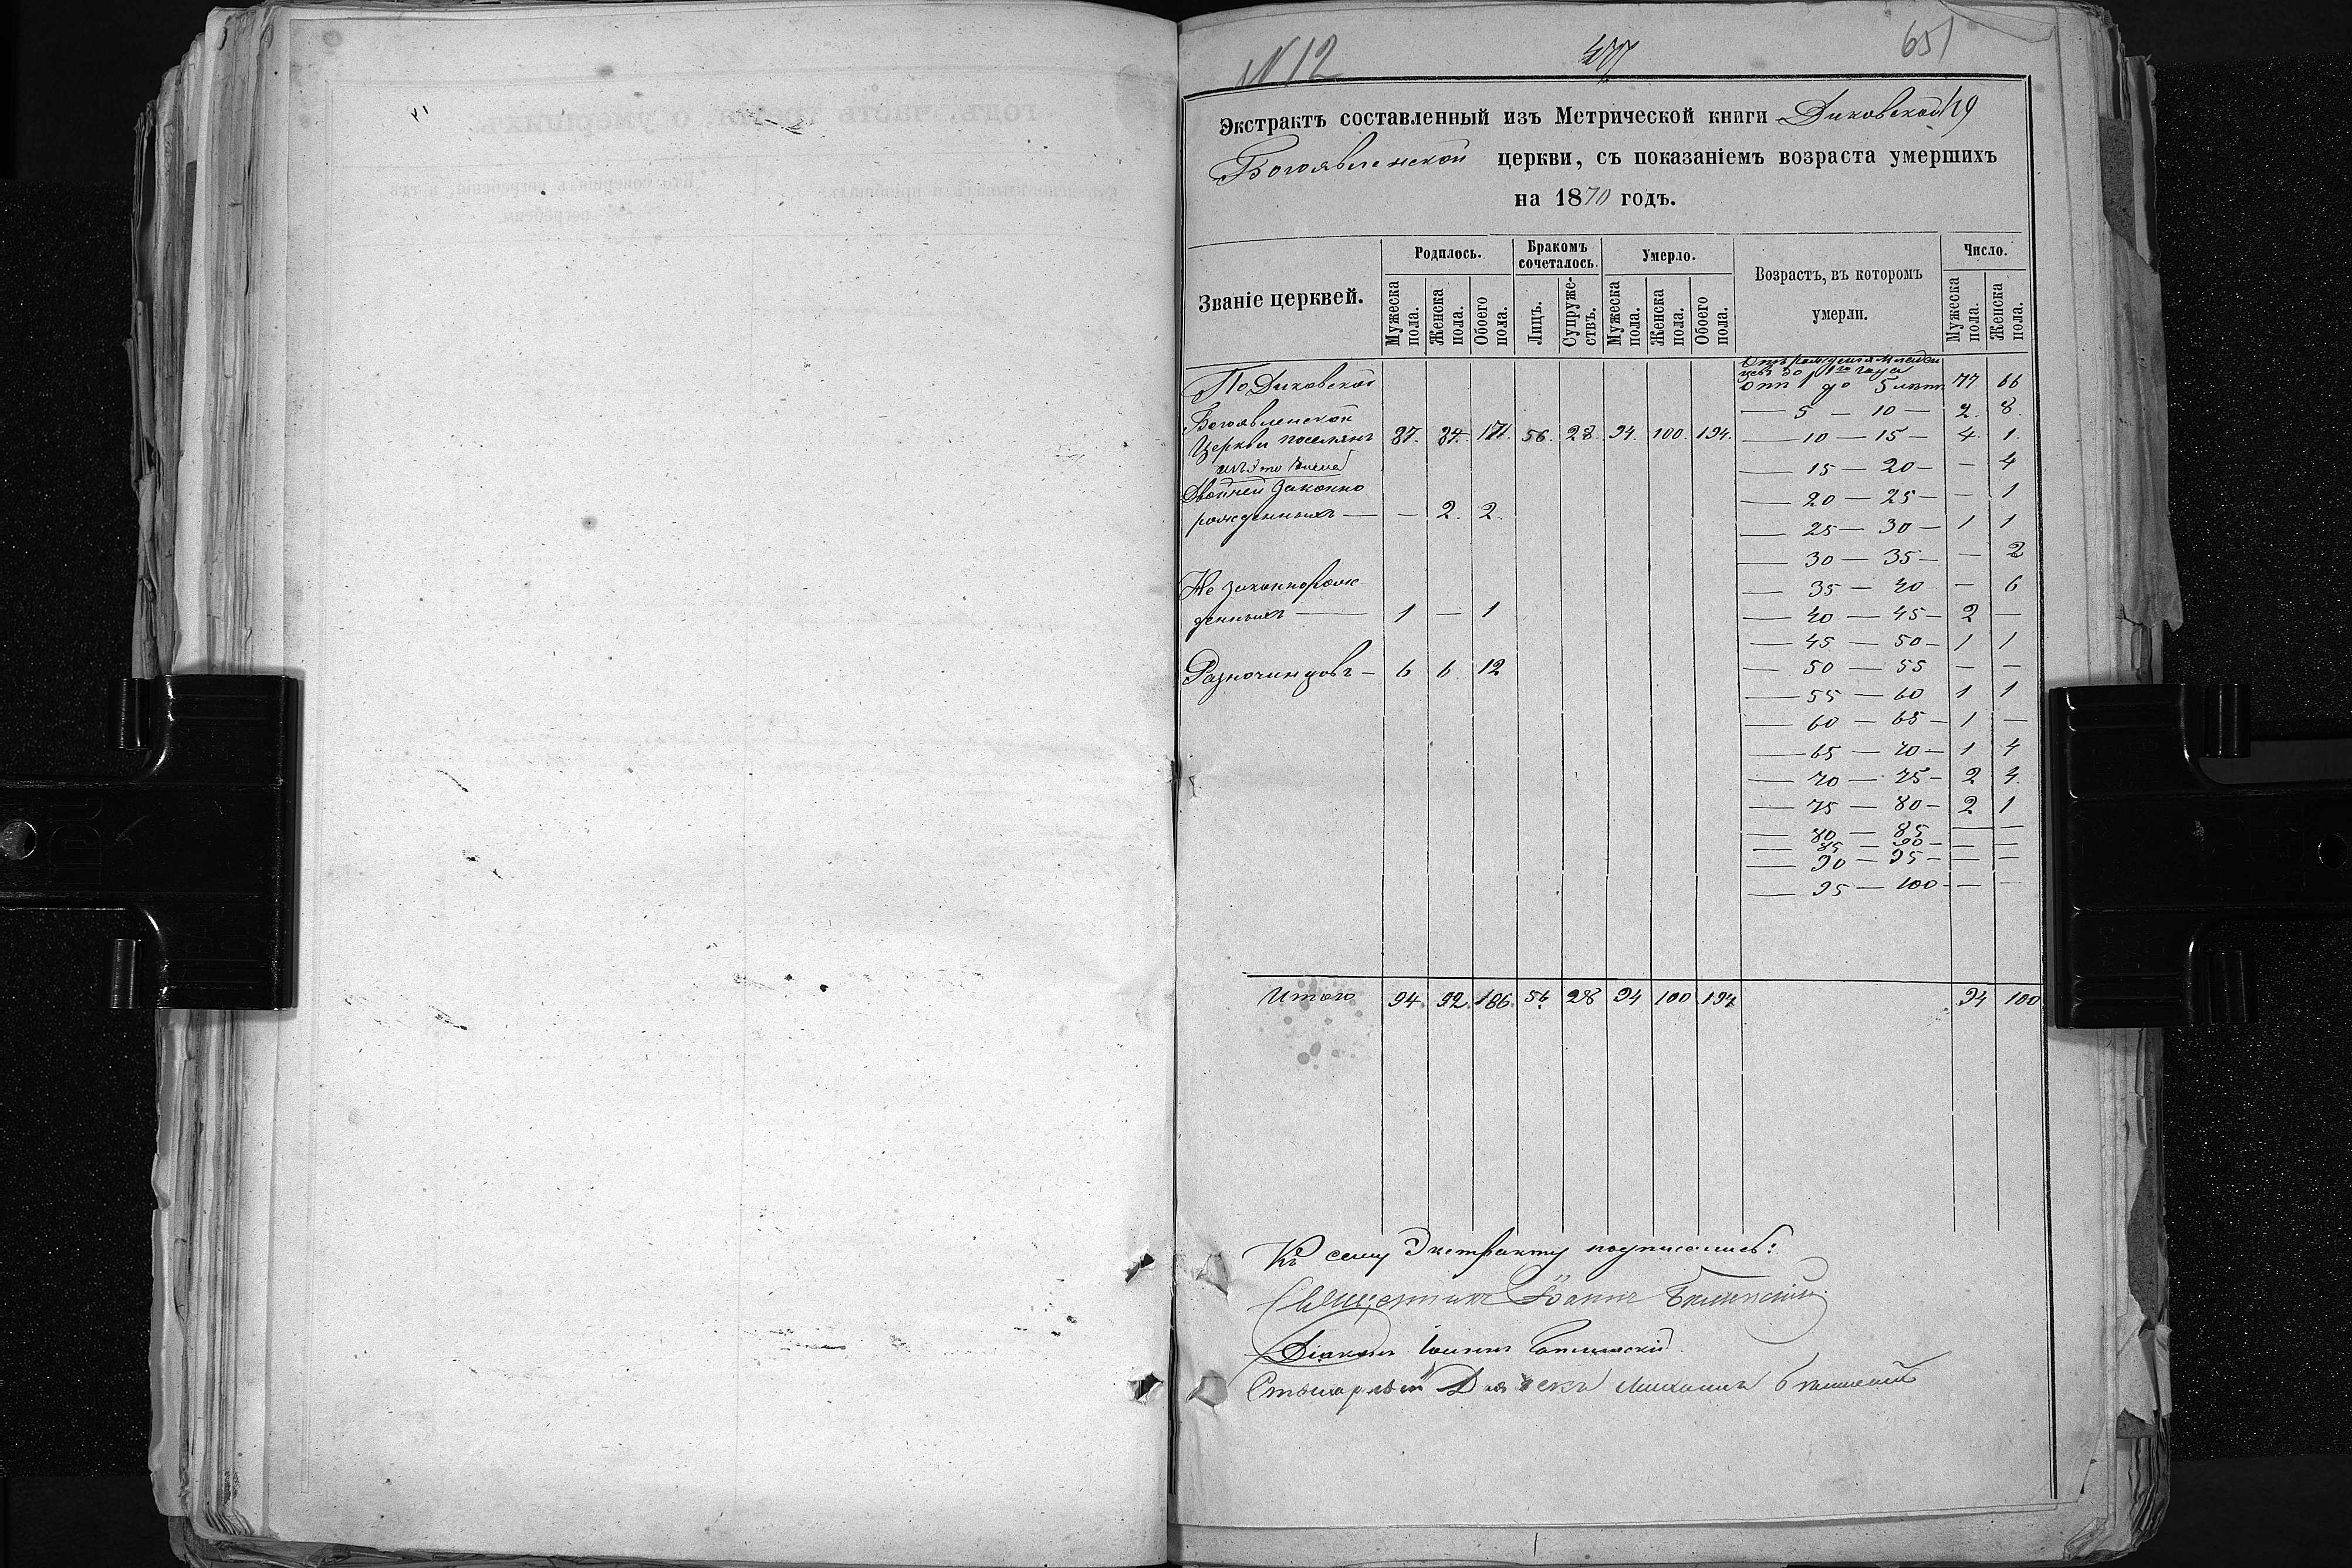 N 12
651
Экстрактъ составленный изъ Метрической книги Диковской
Богоявленской церкви, съ показаніемъ возраста умершихъ
на 1870 годъ.
Званіе церквей.
Родилось.
Мужеска пола.
Женска пола.
Обоего пола.
Бракомъ сочеталось.
Лицъ.
Супружествъ.
Умерло.
Мужеска пола.
Женска пола.
Обоего пола.
Возрастъ, въ которомъ умерли.
Число.
Мужеска пола.
Женска пола.
По Диковской
Богоявленской
Церкви поселянъ 87. 84. 171. 56. 28. 94. 100. 194.
изъ этo числа
Двойней законно
рожденныхъ — — 2. 2.
Не законнорож
денныхъ — 1 — 1
Разночинцовъ — 6 6 12
Отъ рожденія младен
цевъ до 1го года
отъ 1 до 5 лѣтъ 77 66
— 5 — 10 — 2. 8.
— 10 — 15 — 4. 1.
— 15 — 20 — — 4
— 20 — 25 — — 1
— 25 — 30 — 1 1
— 30 — 35 — — 2
— 35 — 40 — 6
— 40 — 45 — 2 —
— 45 — 50 — 1 1
— 50 — 55 — —
— 55 — 60 1 1
— 60 — 65 — 1 —
— 65 — 70 — 1 4
— 70 — 75 — 2 4.
— 75 — 80 — 2 1
— 80 — 85 — —
— 85 — 90 — — —
— 90 — 95 — — —
— 95 — 100 — — —
Итого 94. 92. 186. 56. 28 94 100 194 94 100
Къ сему Экстракту подписались:
Священникъ Іоаннъ
Діаконъ Іоаннъ
Михаилъ